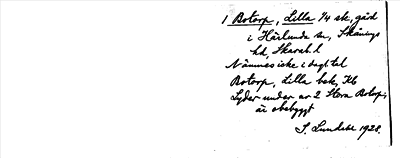 1 Botorp, Lilla 1/4 sk, gård
i Härlunda sn, Skånings
hd, Skarab. l
Nämnes icke i dagl tal
Botorp, Lilla bsk, Kb
Lyder under nr 2 Stora Botorp,
är obebyggt
S. Lundebe 1928.